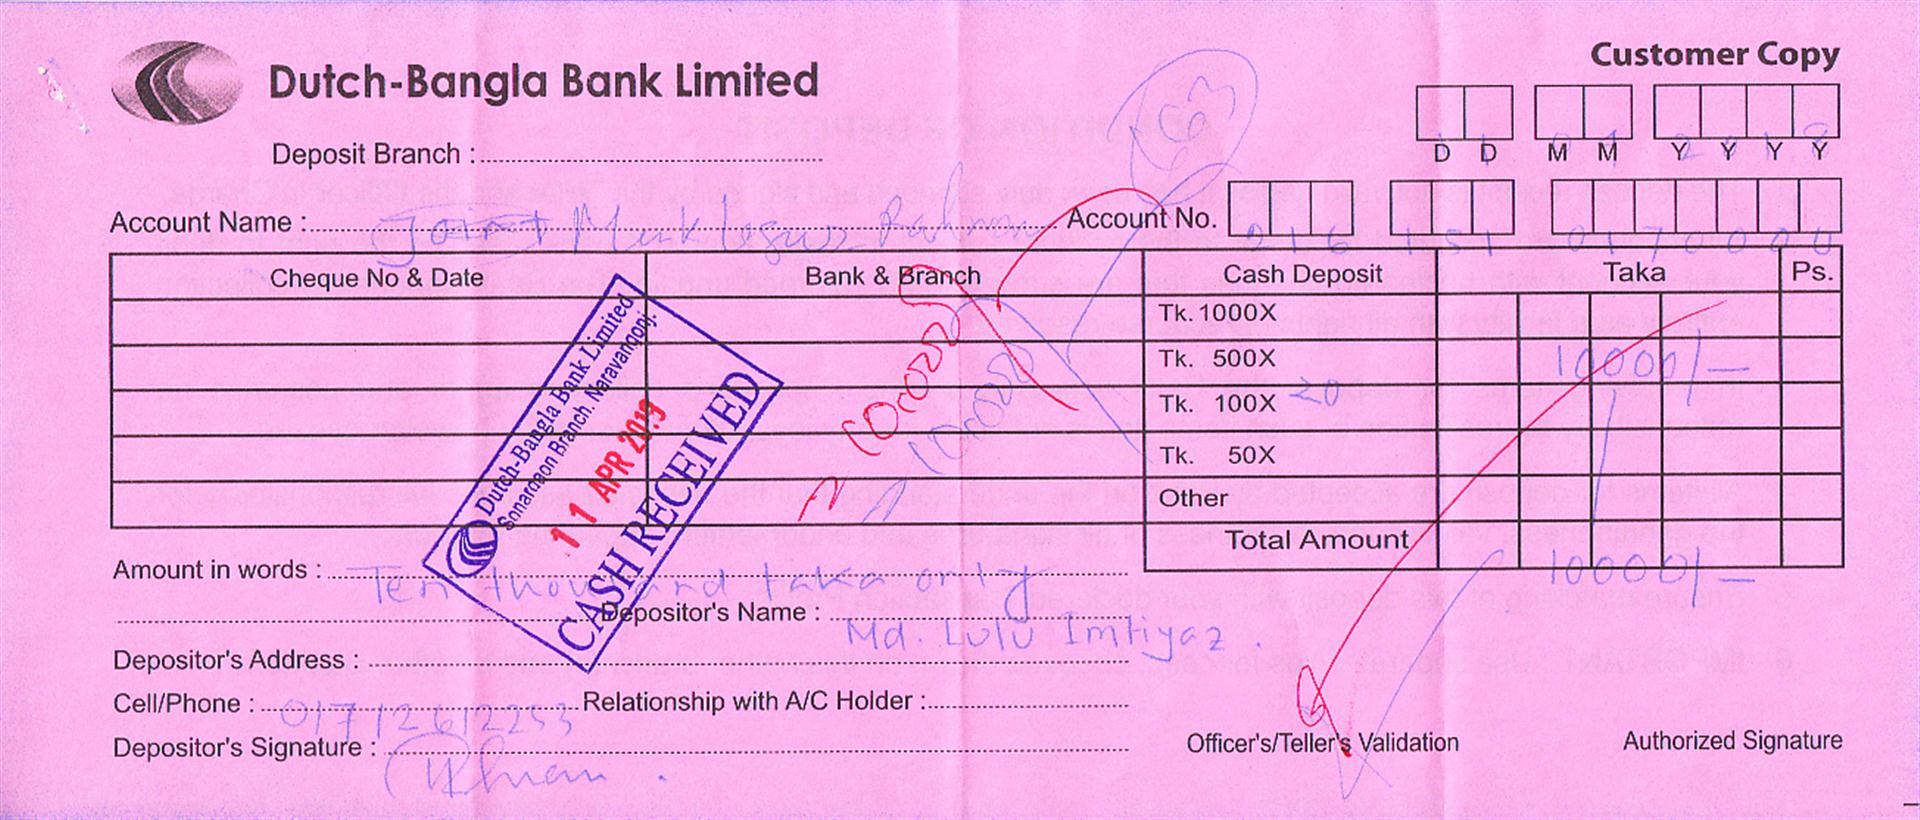 Customer Copy
Dutch-Bangla Bank Limited
D D M M Y Y Y Y
Deposit Branch :
Account Name : Rahman Account No. 216 151 0170000
Cheque No & Date Bank & Branch Cash Deposit Taka Ps.
Tk. 1000X
Tk. 500X 10000/-
Tk. 100X 20
Tk. 50X
Other
Total Amount 10000/-
10,000/
10,000/
Dutch-Bangla Bank Limited
Sonargaon Branch. Narayangonj.
11 APR 2019
CASH RECEIVED
Amount in words : Ten thousand taka only
Depositor's Name : Md. Lulu Imtiyaz.
Depositor's Address :
Cell/Phone : 01712612253 Relationship with A/C Holder :
Depositor's Signature :
Officer's/Teller's Validation Authorized Signature